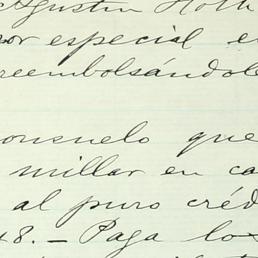 Agustin Hoth
or especial e
reembolsándole
onsuelo que
millar en ca
al puro créd
48. — Paga los